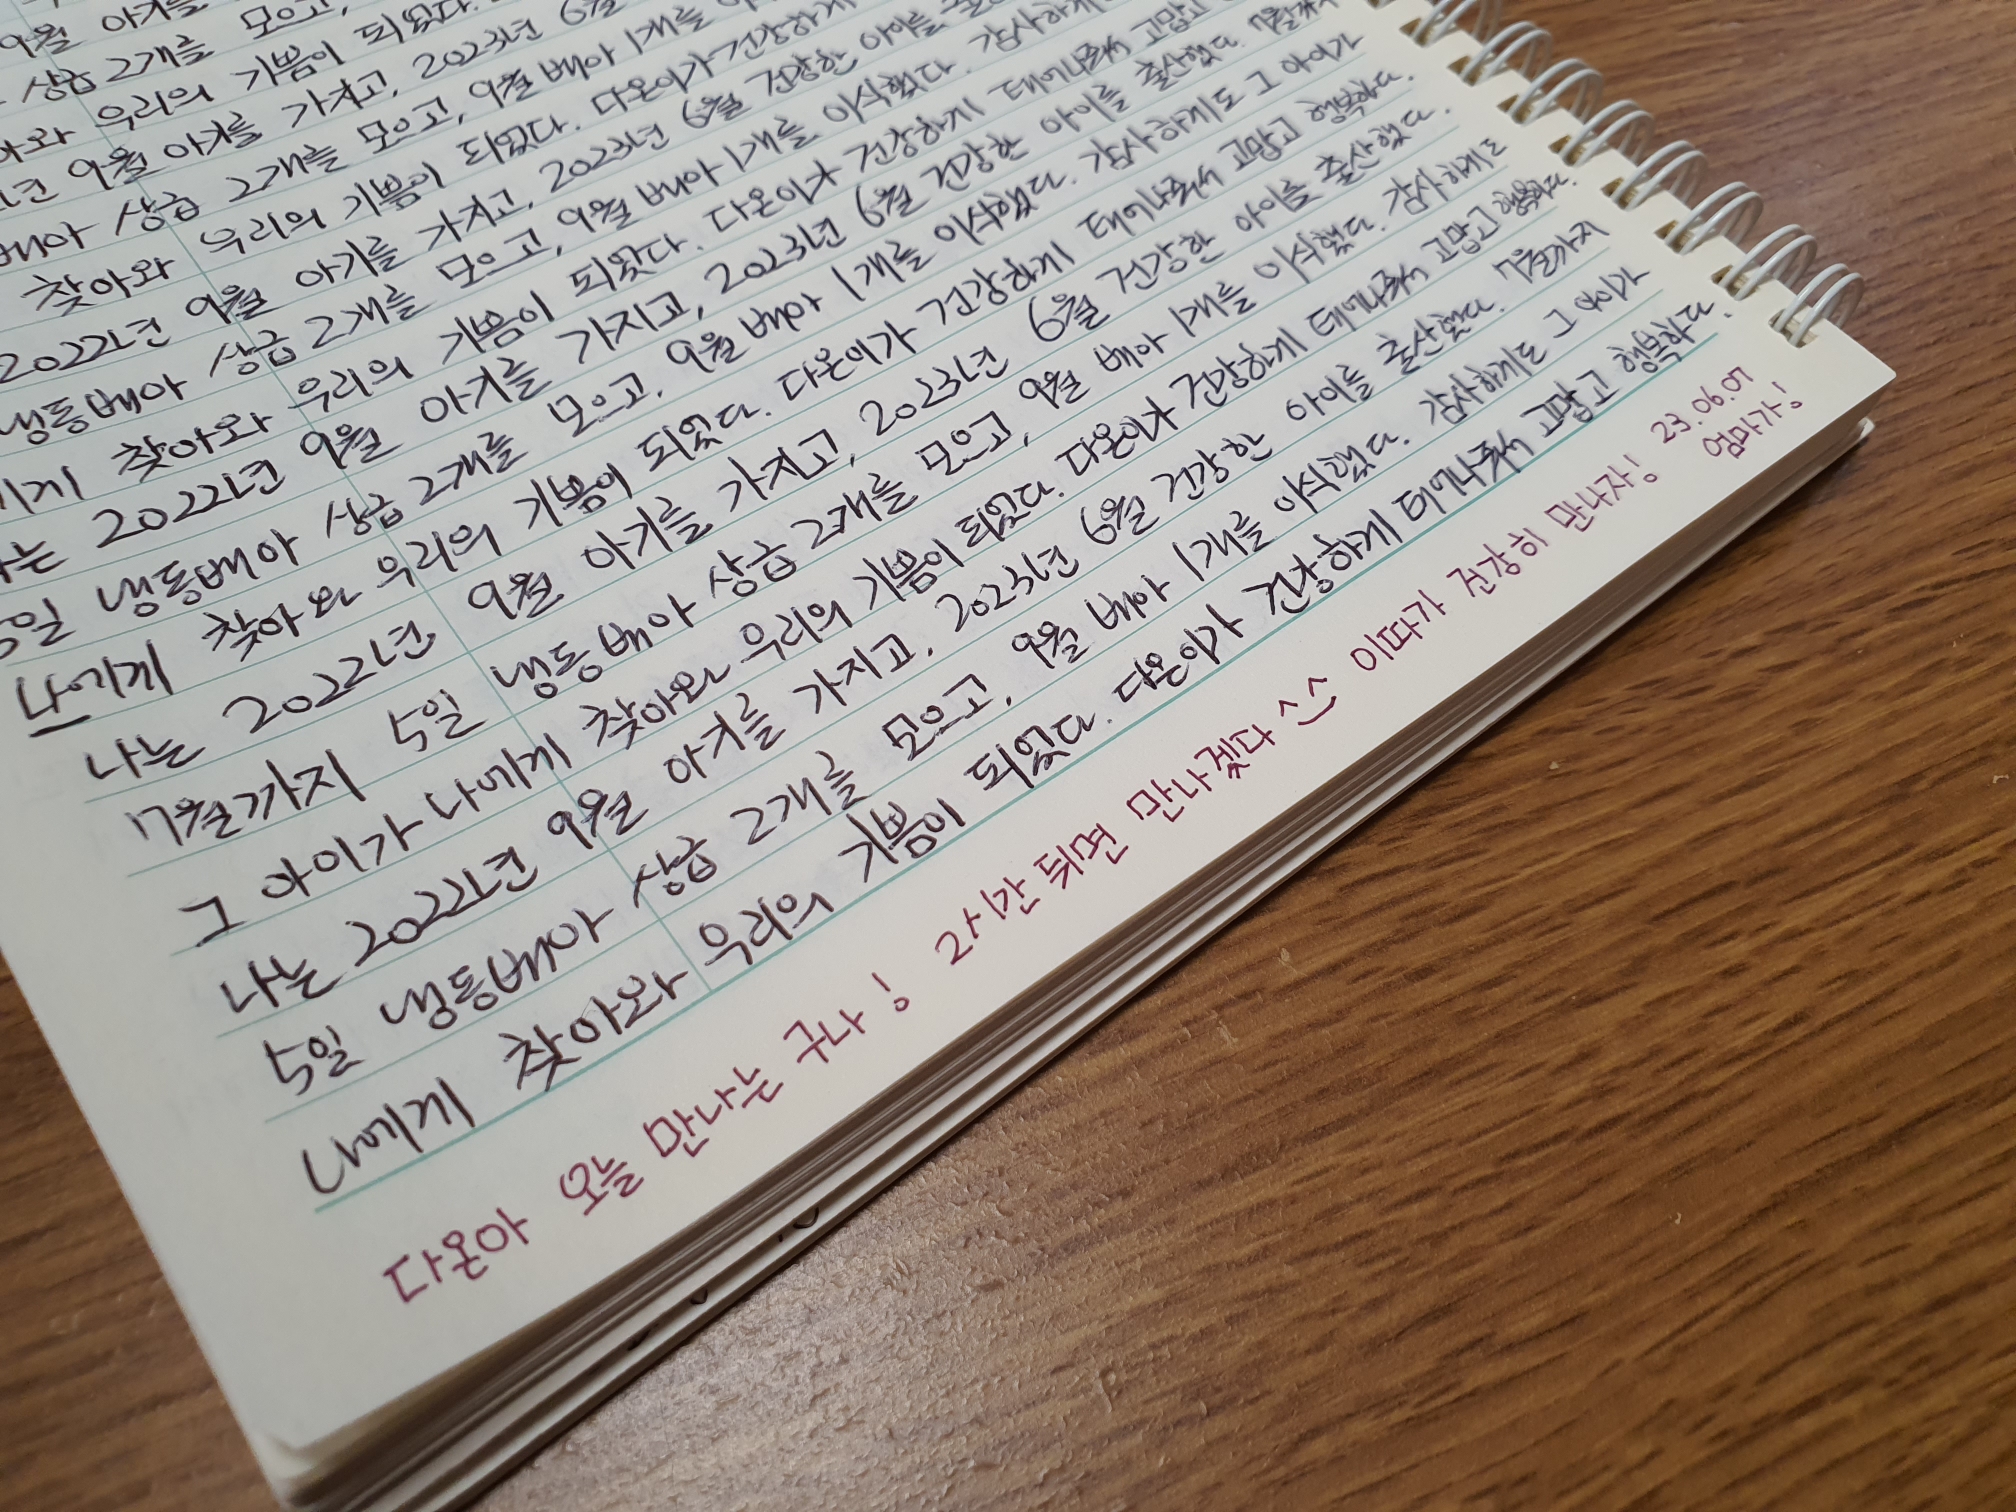 9월 아기를
상급 2개를 모으고,
우리의 기쁨이 되었다.
9월 아기를 가지고, 2023년 6월
배아 상급 2개를 모으고, 9월 배아 1개를
찾아와 우리의 기쁨이 되었다. 다온이가 건강하게
2022년 9월 아기를 가지고, 2023년 6월 건강한 아이를
냉동배아 상급 2개를 모으고, 9월 배아 1개를 이식했다. 감사하게
에게 찾아와 우리의 기쁨이 되었다. 다온이가 건강하게 태어나줘서 고맙고
는 2022년 9월 아기를 가지고, 2023년 6월 건강한 아이를 출산했다. 7월까지
5일 냉동배아 상급 2개를 모으고, 9월 배아 1개를 이식했다. 감사하게도 그 아이가
나에게 찾아와 우리의 기쁨이 되었다. 다온이가 건강하게 태어나줘서 고맙고 행복하다.
나는 2022년 9월 아기를 가지고, 2023년 6월 건강한 아이를 출산했다.
7월까지 5일 냉동배아 상급 2개를 모으고, 9월 배아 1개를 이식했다. 감사하게도
그 아이가 나에게 찾아와 우리의 기쁨이 되었다. 다온이가 건강하게 태어나줘서 고맙고 행복하다.
나는 2022년 9월 아기를 가지고, 2023년 6월 건강한 아이를 출산했다. 7월까지
5일 냉동배아 상급 2개를 모으고, 9월 배아 1개를 이식했다. 감사하게도 그 아이가
나에게 찾아와 우리의 기쁨이 되었다. 다온이가 건강하게 태어나줘서 고맙고 행복하다.
다온아 오늘 만나는 구나! 2시간 뒤면 만나겠다 ^‿^ 이따가 건강히 만나자! 23.06.07
엄마가!